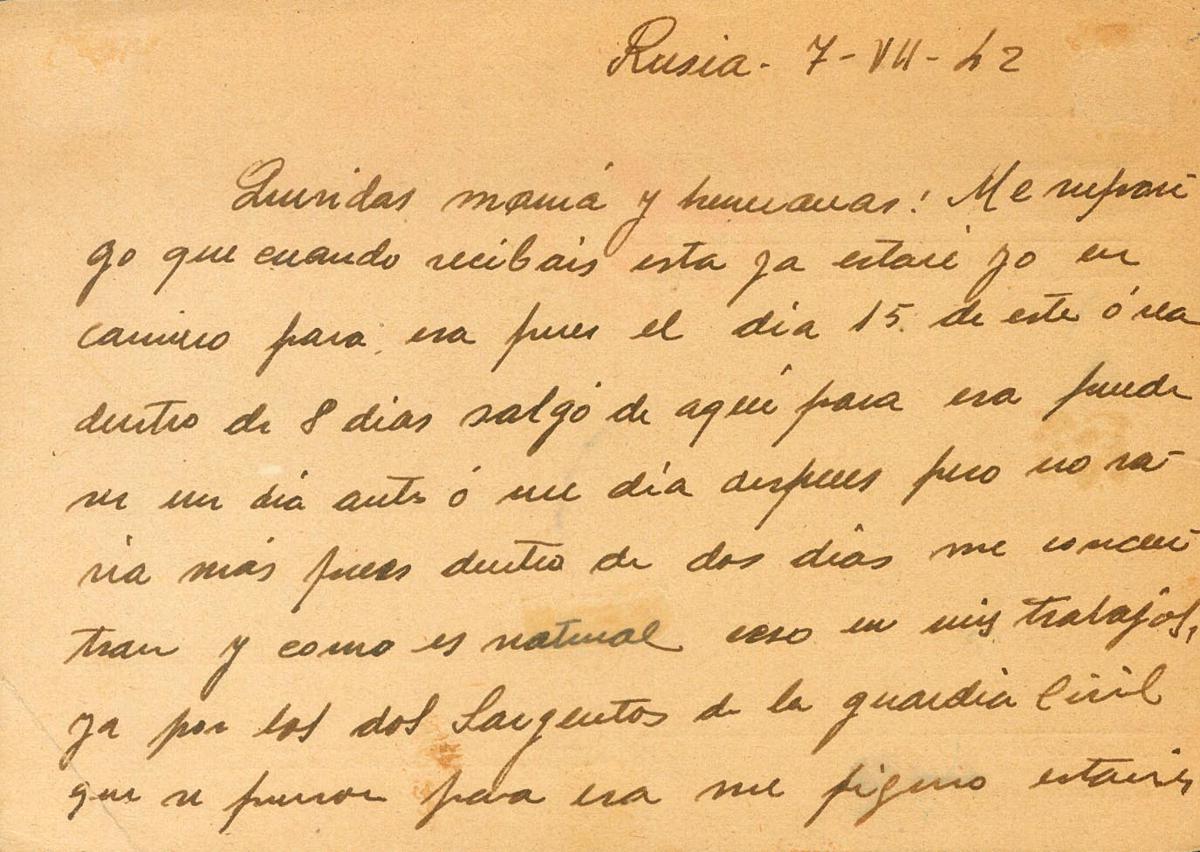 Rusia - 7 - VII - 42
Queridas mamá y hermanas: Me supon
go que cuando recibais esta ya estaré yo en
camino para esa pues el dia 15 de este ó sea
dentro de 8 dias salgó de aquí para esa puede
ser un dia antes ó un día despues pero no va-
ria más pues dentro de dos dias me concen
tran y como es natural ceso en mis trabajos,
ya por los dos Sargentos de la guardia Civil
que se fueron para esa me figuro estareis